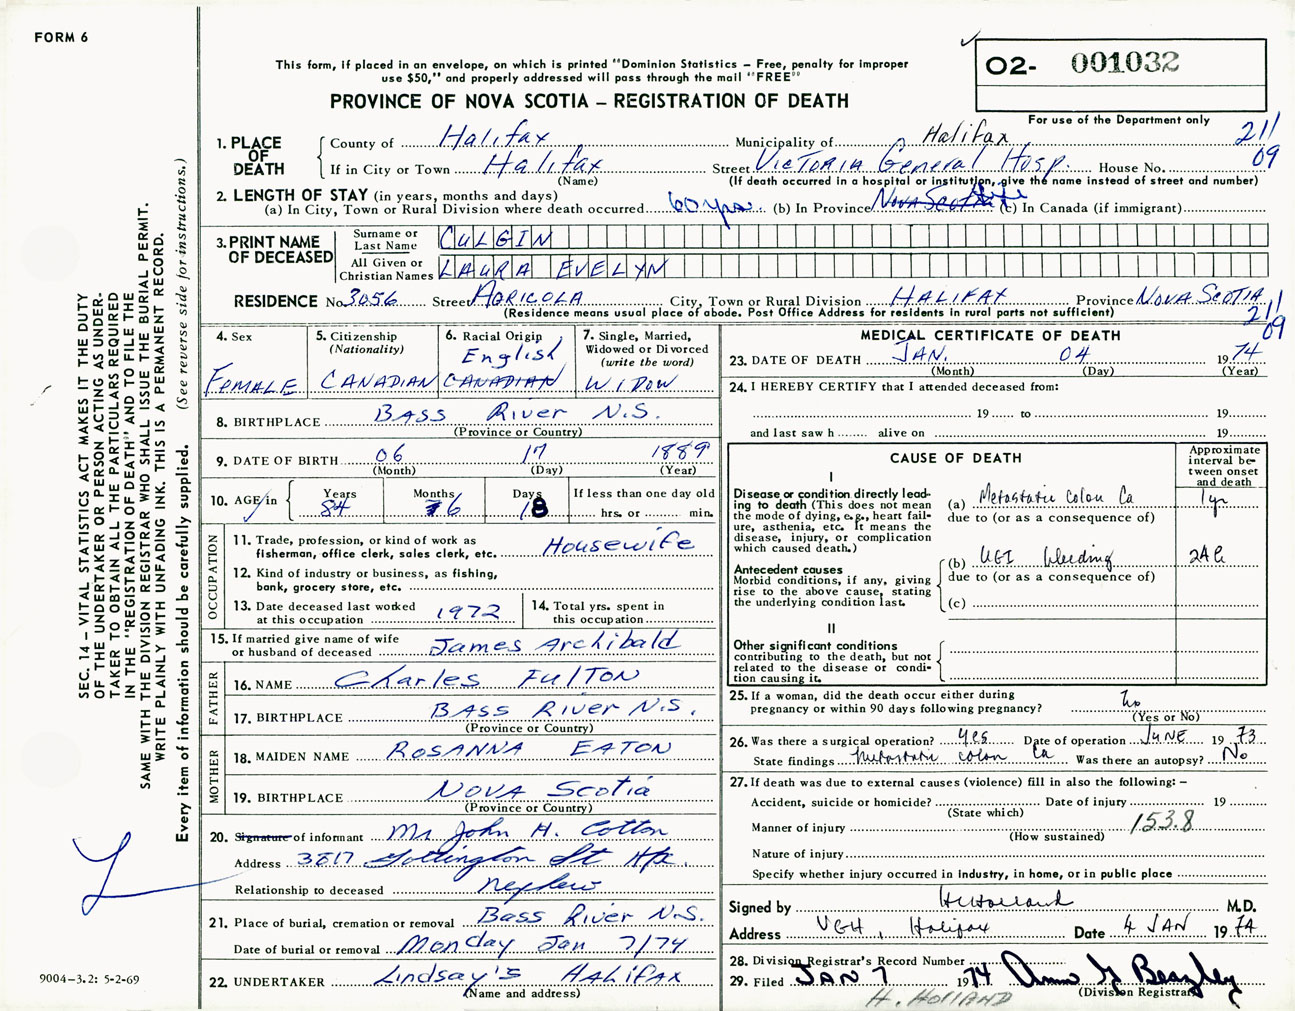 FORM 6
This form, if placed in an envelope, on which is printed "Dominion Statistics – Free, penalty for improper
use $50," and properly addressed will pass through the mail "FREE"
PROVINCE OF NOVA SCOTIA – REGISTRATION OF DEATH
02- 001032
For use of the Department only
211
09
1. PLACE OF DEATH
County of Halifax Municipality of Halifax
If in City or Town Halifax Street Victoria General Hosp. House No.
(Name) (If death occurred in a hospital or institution, give the name instead of street and number)
2. LENGTH OF STAY (in years, months and days)
(a) In City, Town or Rural Division where death occurred 60 yrs. (b) In Province Nova Scotia life (c) In Canada (if immigrant)
3. PRINT NAME OF DECEASED
Surname or Last Name CULGIN
All Given or Christian Names LAURA EVELYN
RESIDENCE No. 3056 Street AGRICOLA City, Town or Rural Division HALIFAX Province NOVA SCOTIA
(Residence means usual place of abode. Post Office Address for residents in rural parts not sufficient)
211
09
4. Sex FEMALE
5. Citizenship (Nationality) CANADIAN
6. Racial Origin English CANADIAN
7. Single, Married, Widowed or Divorced (write the word) WIDOW
8. BIRTHPLACE BASS River N.S.
(Province or Country)
9. DATE OF BIRTH 06 17 1889
(Month) (Day) (Year)
10. AGE in Years 84 Months 6 Days 18 If less than one day old
hrs. or min.
OCCUPATION
11. Trade, profession, or kind of work as
fisherman, office clerk, sales clerk, etc. HOUSEWIFE
12. Kind of industry or business, as fishing,
bank, grocery store, etc.
13. Date deceased last worked
at this occupation 1972
14. Total yrs. spent in
this occupation
15. If married give name of wife
or husband of deceased James Archibald
FATHER
16. NAME Charles FULTON
17. BIRTHPLACE BASS River N.S.
(Province or Country)
MOTHER
18. MAIDEN NAME ROSANNA EATON
19. BIRTHPLACE NOVA Scotia
(Province or Country)
20. Signature of informant Mr John H. Cotton
Address 3817 Gottingen St Hfx.
Relationship to deceased nephew
21. Place of burial, cremation or removal Bass River N.S.
Date of burial or removal Monday Jan 7/74
22. UNDERTAKER Lindsay's HALIFAX
(Name and address)
MEDICAL CERTIFICATE OF DEATH
23. DATE OF DEATH JAN. 04 1974
(Month) (Day) (Year)
24. I HEREBY CERTIFY that I attended deceased from:
19 to 19
and last saw h alive on 19
CAUSE OF DEATH
Approximate interval between onset and death
I
Disease or condition directly leading to death (This does not
mean the mode of dying, e.g., heart failure, asthenia, etc. It means the
disease, injury, or complication
which caused death.)
(a) Metastatic Colon Ca 1 yr
due to (or as a consequence of)
Antecedent causes
Morbid conditions, if any, giving
rise to the above cause, stating
the underlying condition last.
(b) UGI bleeding
due to (or as a consequence of)
(c)
II
Other significant conditions
contributing to the death, but not
related to the disease or condition causing it.
25. If a woman, did the death occur either during
pregnancy or within 90 days following pregnancy? No
(Yes or No)
26. Was there a surgical operation? yes Date of operation JUNE 1973
State findings Metastatic colon Ca Was there an autopsy? No
27. If death was due to external causes (violence) fill in also the following: –
Accident, suicide or homicide? Date of injury 19
(State which)
Manner of injury 153.8
(How sustained)
Nature of injury
Specify whether injury occurred in industry, in home, or in public place
Signed by H Holland M.D.
Address VGH, Halifax Date 4 JAN 1974
28. Division Registrar's Record Number
29. Filed JAN 7 1974
(Division Registrar)
H. HOLLAND
SEC. 14 – VITAL STATISTICS ACT MAKES IT THE DUTY
OF THE UNDERTAKER OR PERSON ACTING AS UNDERTAKER
TO OBTAIN ALL THE PARTICULARS REQUIRED
IN THE "REGISTRATION OF DEATH" AND TO FILE THE
SAME WITH THE DIVISION REGISTRAR WHO SHALL ISSUE THE BURIAL PERMIT.
WRITE PLAINLY WITH UNFADING INK. THIS IS A PERMANENT RECORD.
Every item of information should be carefully supplied. (See reverse side for instructions.)
9004-3.2: 5-2-69